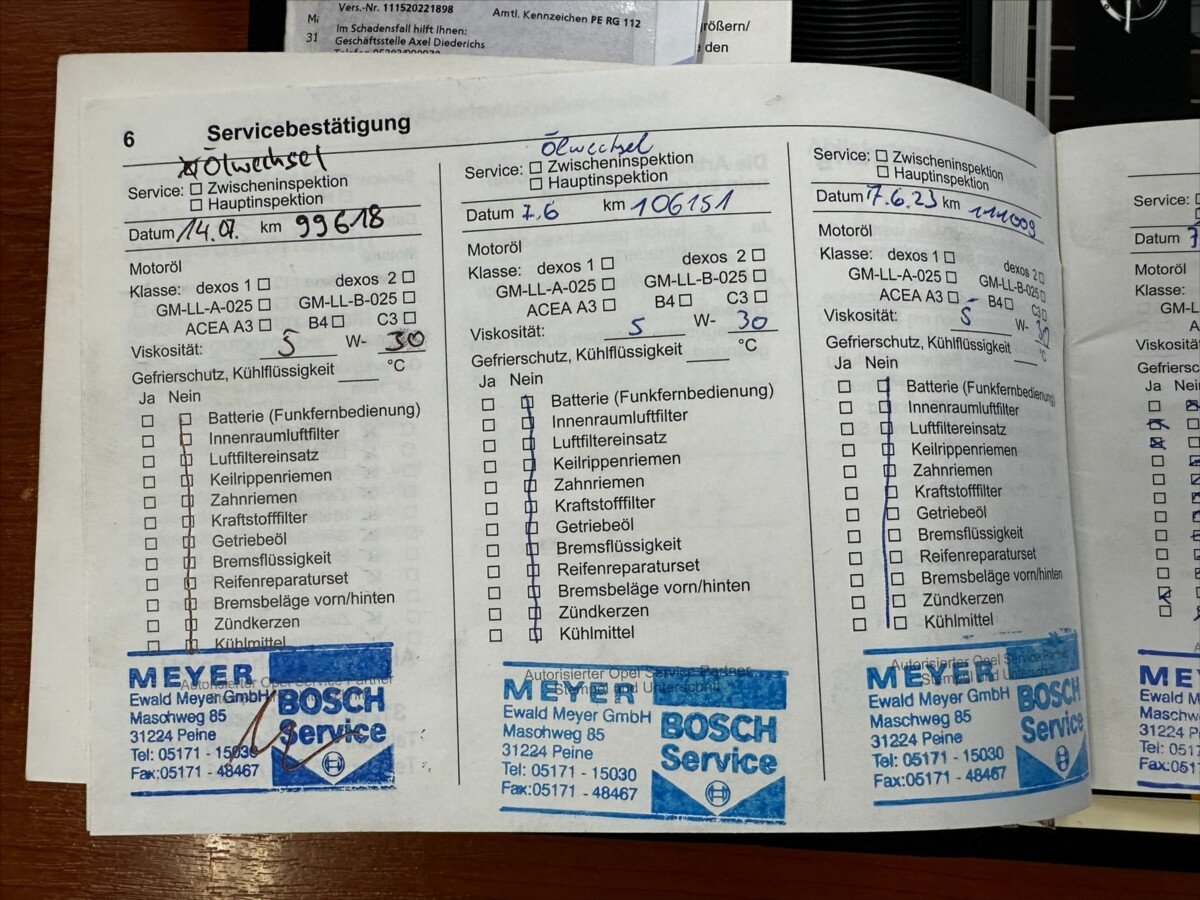 Vers.-Nr. 111520221898
Amtl. Kennzeichen PE RG 112
Im Schadensfall hilft Ihnen:
Geschäftsstelle Axel Diederichs
31
größern/
den
6 Servicebestätigung
Ölwechsel
Service: Zwischeninspektion
Hauptinspektion
Datum 14.07. km 99618
Motoröl
Klasse: dexos 1 dexos 2
GM-LL-A-025 GM-LL-B-025
ACEA A3 B4 C3
Viskosität: 5 W- 30
Gefrierschutz, Kühlflüssigkeit °C
Ja Nein
Batterie (Funkfernbedienung)
Innenraumluftfilter
Luftfiltereinsatz
Keilrippenriemen
Zahnriemen
Kraftstofffilter
Getriebeöl
Bremsflüssigkeit
Reifenreparaturset
Bremsbeläge vorn/hinten
Zündkerzen
Kühlmittel
Autorisierter Opel Service Partner
MEYER
Ewald Meyer GmbH
Maschweg 85
31224 Peine
Tel: 05171 - 15030
Fax:05171 - 48467
BOSCH
Service
Ölwechsel
Service: Zwischeninspektion
Hauptinspektion
Datum 7.6 km 106151
Motoröl
Klasse: dexos 1 dexos 2
GM-LL-A-025 GM-LL-B-025
ACEA A3 B4 C3
Viskosität: 5 W- 30
Gefrierschutz, Kühlflüssigkeit °C
Ja Nein
Batterie (Funkfernbedienung)
Innenraumluftfilter
Luftfiltereinsatz
Keilrippenriemen
Zahnriemen
Kraftstofffilter
Getriebeöl
Bremsflüssigkeit
Reifenreparaturset
Bremsbeläge vorn/hinten
Zündkerzen
Kühlmittel
Autorisierter Opel Service Partner
Stempel und Unterschrift
MEYER
Ewald Meyer GmbH
Maschweg 85
31224 Peine
Tel: 05171 - 15030
Fax:05171 - 48467
BOSCH
Service
Service: Zwischeninspektion
Hauptinspektion
Datum 7.6.23 km 111009
Motoröl
Klasse: dexos 1 dexos 2
GM-LL-A-025 GM-LL-B-025
ACEA A3 B4 C3
Viskosität: 5 W- 30
Gefrierschutz, Kühlflüssigkeit °C
Ja Nein
Batterie (Funkfernbedienung)
Innenraumluftfilter
Luftfiltereinsatz
Keilrippenriemen
Zahnriemen
Kraftstofffilter
Getriebeöl
Bremsflüssigkeit
Reifenreparaturset
Bremsbeläge vorn/hinten
Zündkerzen
Kühlmittel
Autorisierter Opel Service Partner
Stempel und Unterschrift
MEYER
Ewald Meyer GmbH
Maschweg 85
31224 Peine
Tel: 05171 - 15030
Fax:05171 - 48467
BOSCH
Service
Service:
Datum 7
Motoröl
Klasse:
GM-LL
A
Viskosität
Gefriersc
Ja Nein
ME
Ewald
Maschw
31224
Tel: 051
Fax:051